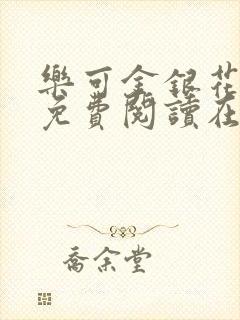 樂可金銀花
免費閱讀在
喬余堂